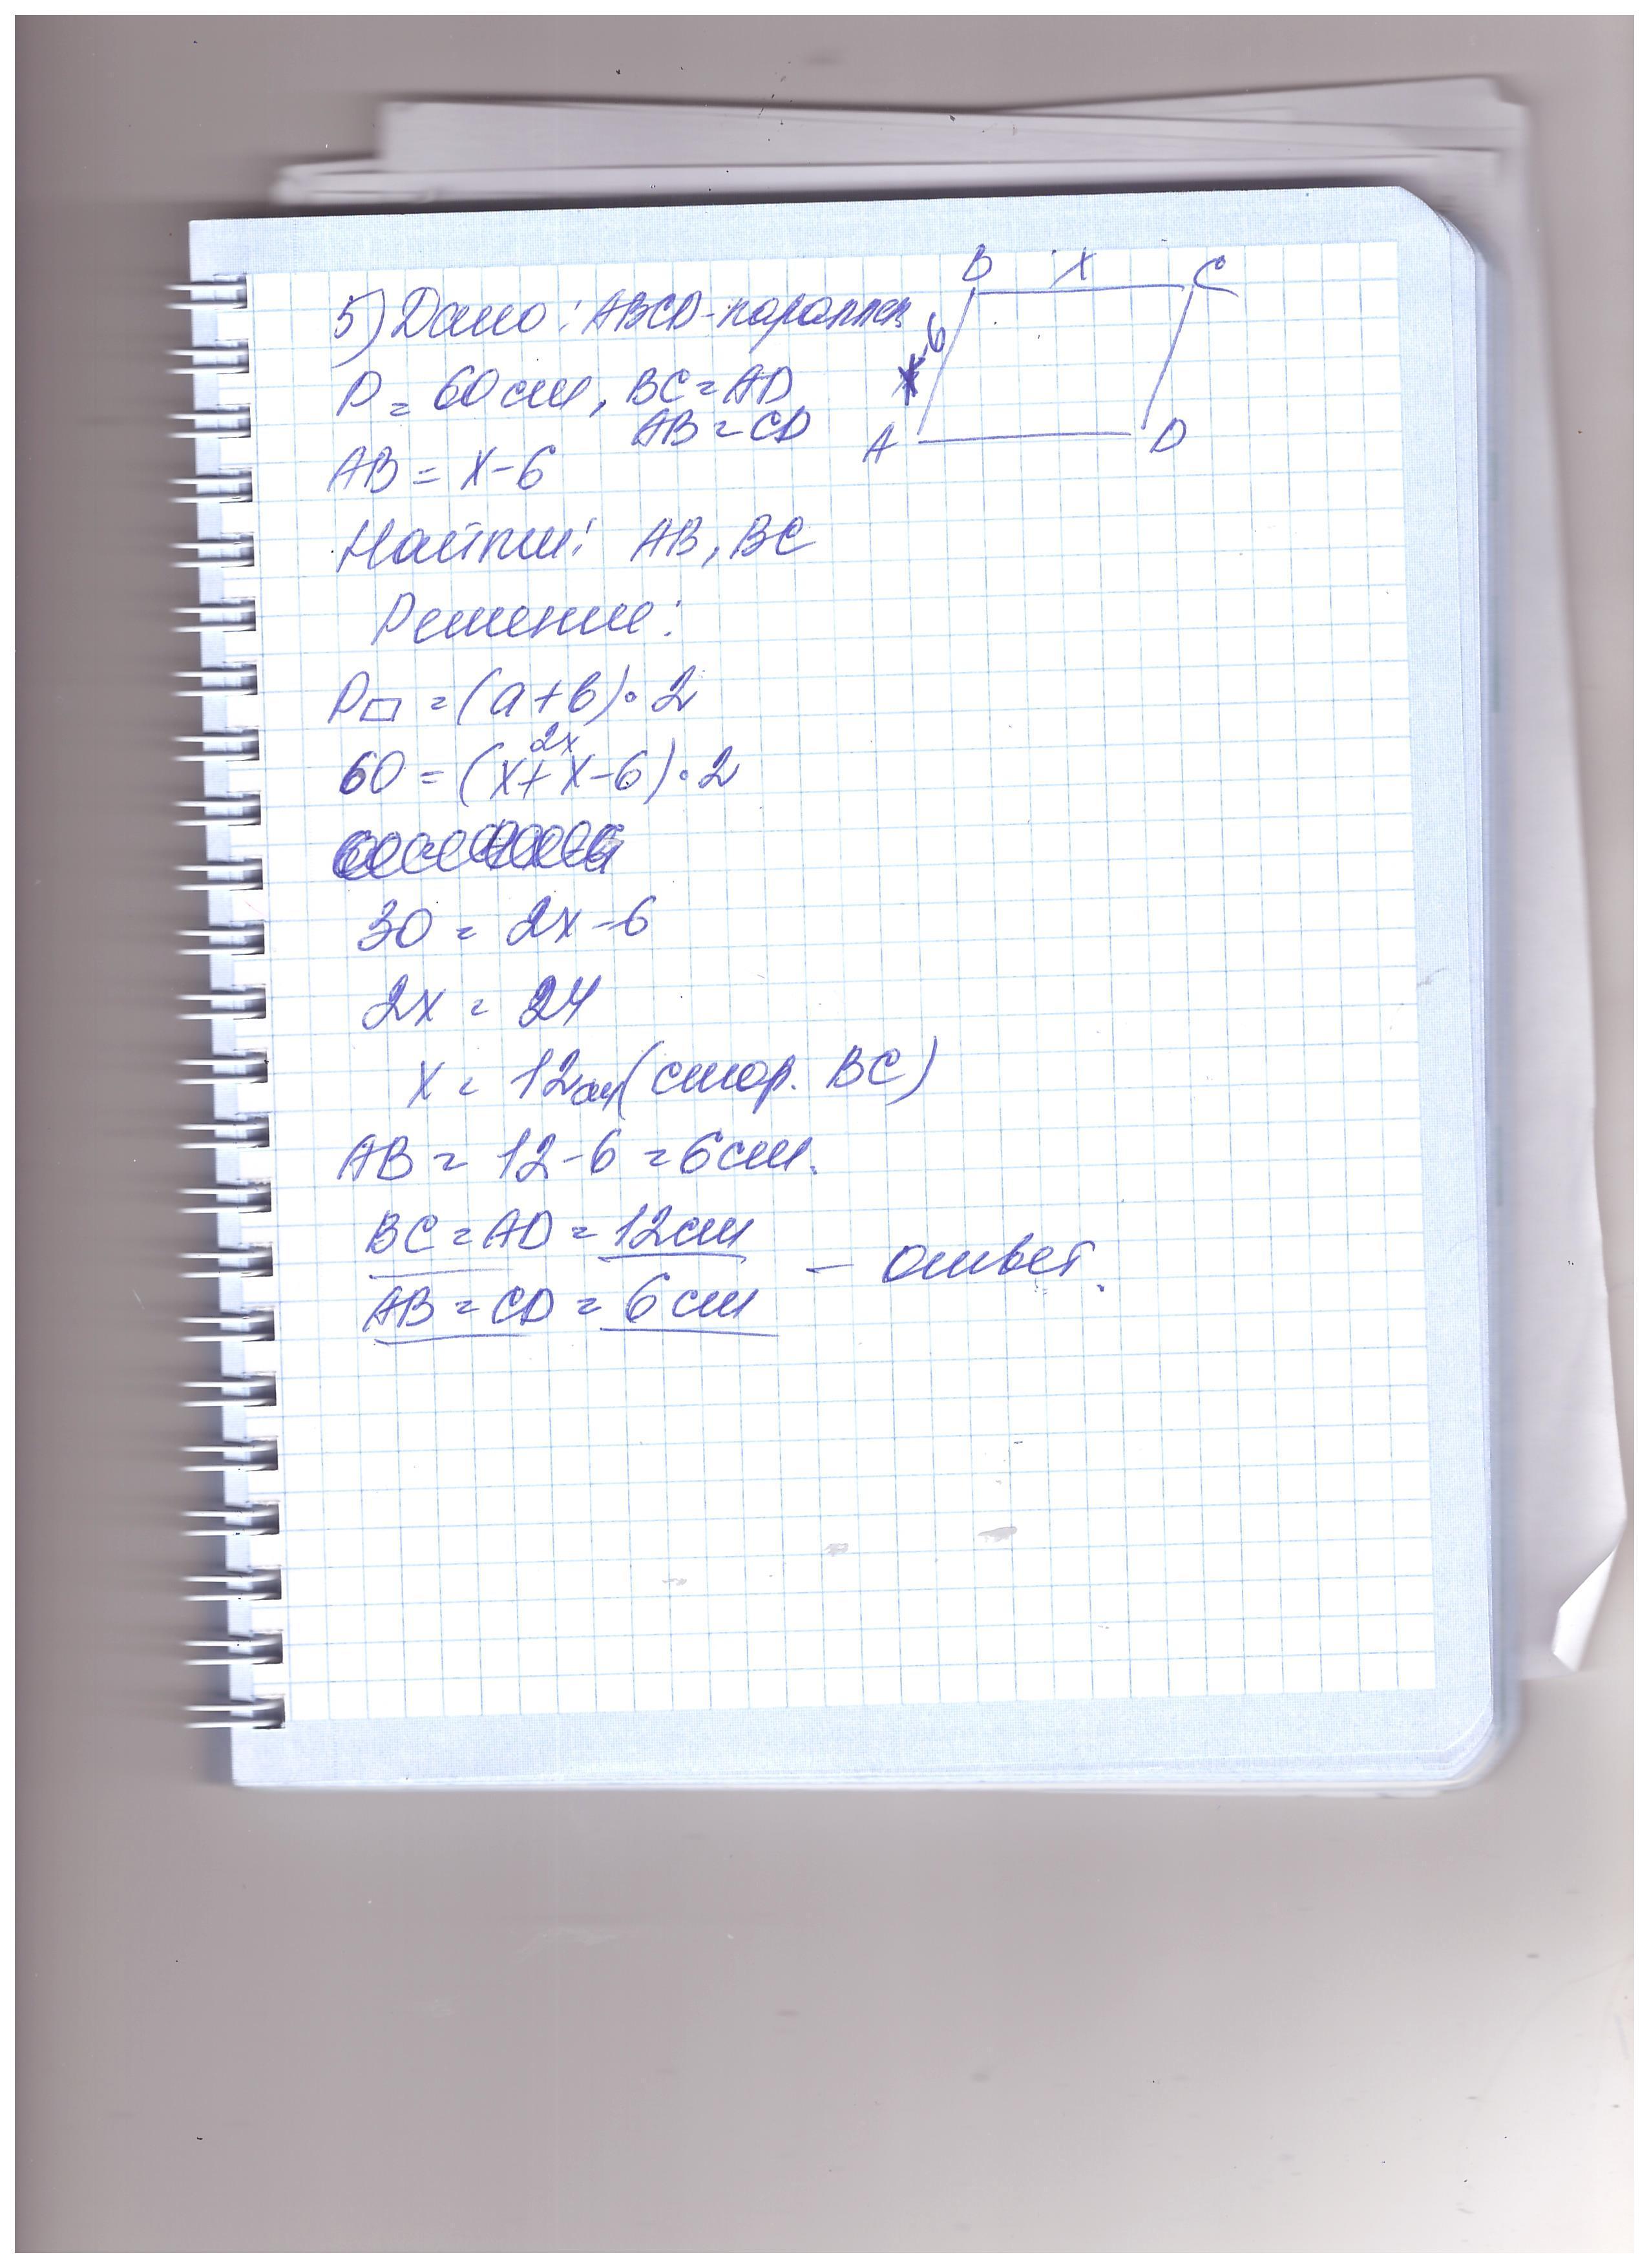 5) Дано: ABCD-параллел.
P = 60 см, BC = AD
AB = CD
AB = x-6
B x C
x-6
A D
Найти: AB, BC
Решение:
P▭ = (a+b)·2
2x
60 = (x+x-6)·2
30 = 2x-6
2x = 24
x = 12см (стор. BC)
AB = 12-6 = 6 см.
BC = AD = 12 см
AB = CD = 6 см
– ответ.